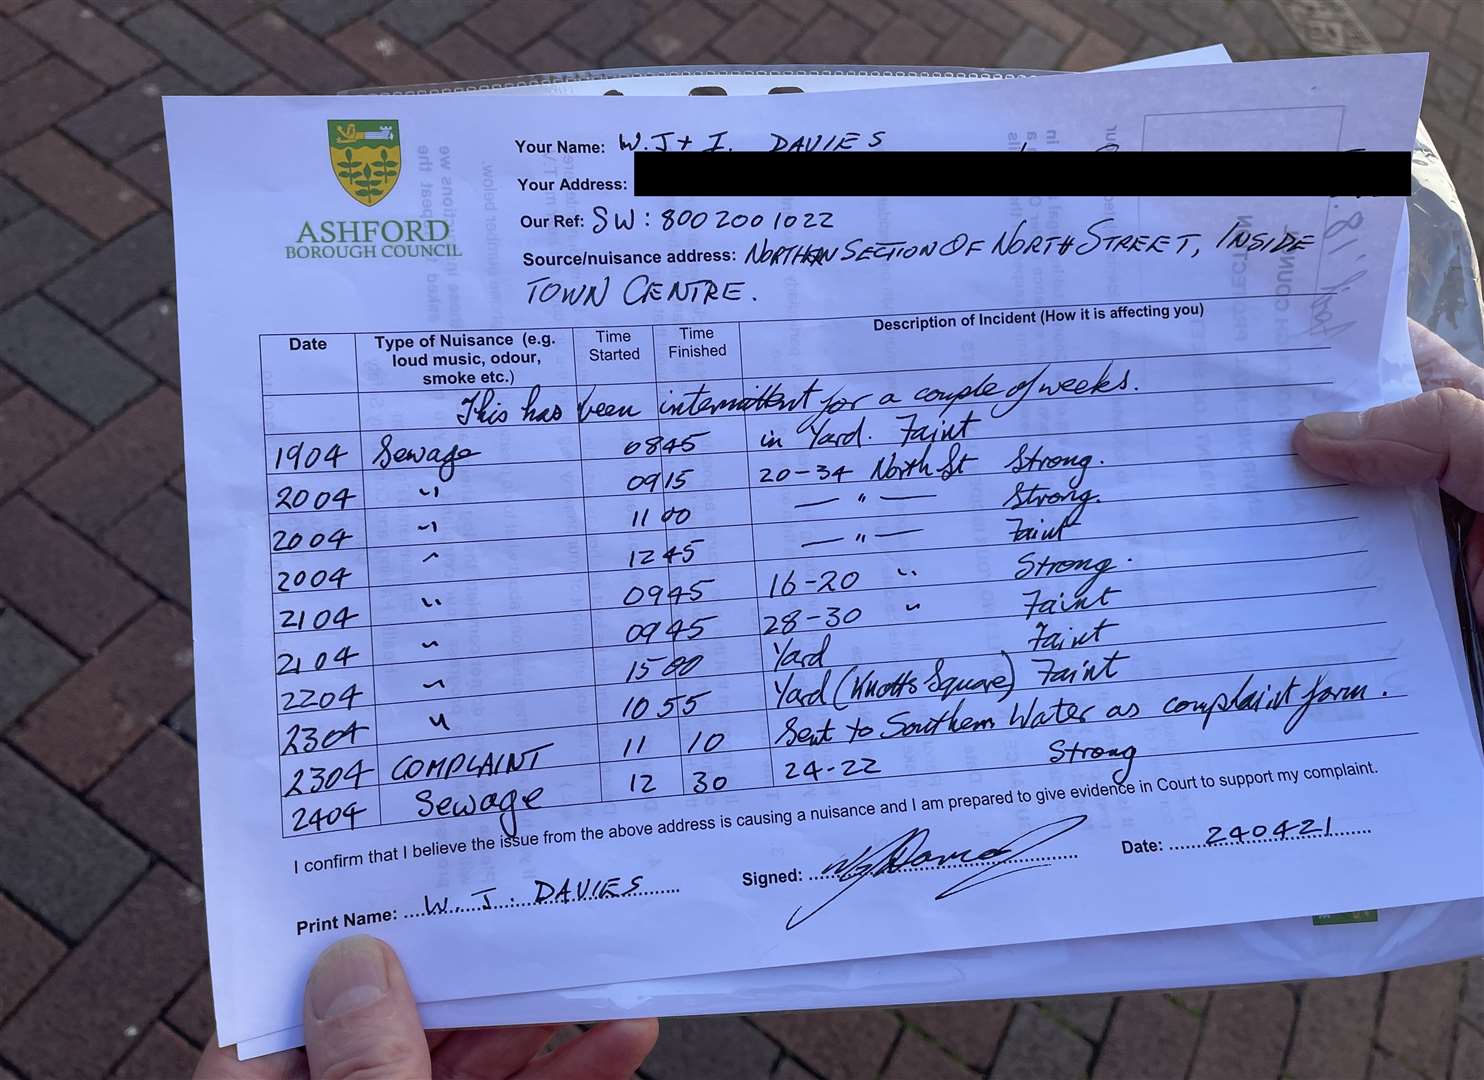 ASHFORD
BOROUGH COUNCIL
Your Name: W. J + I. DAVIES
Your Address:
Our Ref: SW: 800 200 1022
Source/nuisance address: NORTHERN SECTION OF NORTH STREET, INSIDE
TOWN CENTRE.
Date Type of Nuisance (e.g. loud music, odour, smoke etc.) Time Started Time Finished Description of Incident (How it is affecting you)
This has been intermittent for a couple of weeks.
1904 Sewage 0845 in Yard. Faint
2004 〃 0915 20-34 North St Strong.
2004 〃 1100 — 〃 — Strong.
2004 〃 1245 — 〃 — Faint
2104 〃 0945 16-20 〃 Strong.
2104 〃 0945 28-30 〃 Faint
2204 〃 1500 Yard Faint
2304 〃 1055 Yard (Knotts Square) Faint
2304 COMPLAINT 11 10 Sent to Southern Water as complaint form.
2404 Sewage 12 30 24-22 Strong
I confirm that I believe the issue from the above address is causing a nuisance and I am prepared to give evidence in Court to support my complaint.
Print Name: W. J. DAVIES Signed: Date: 240421